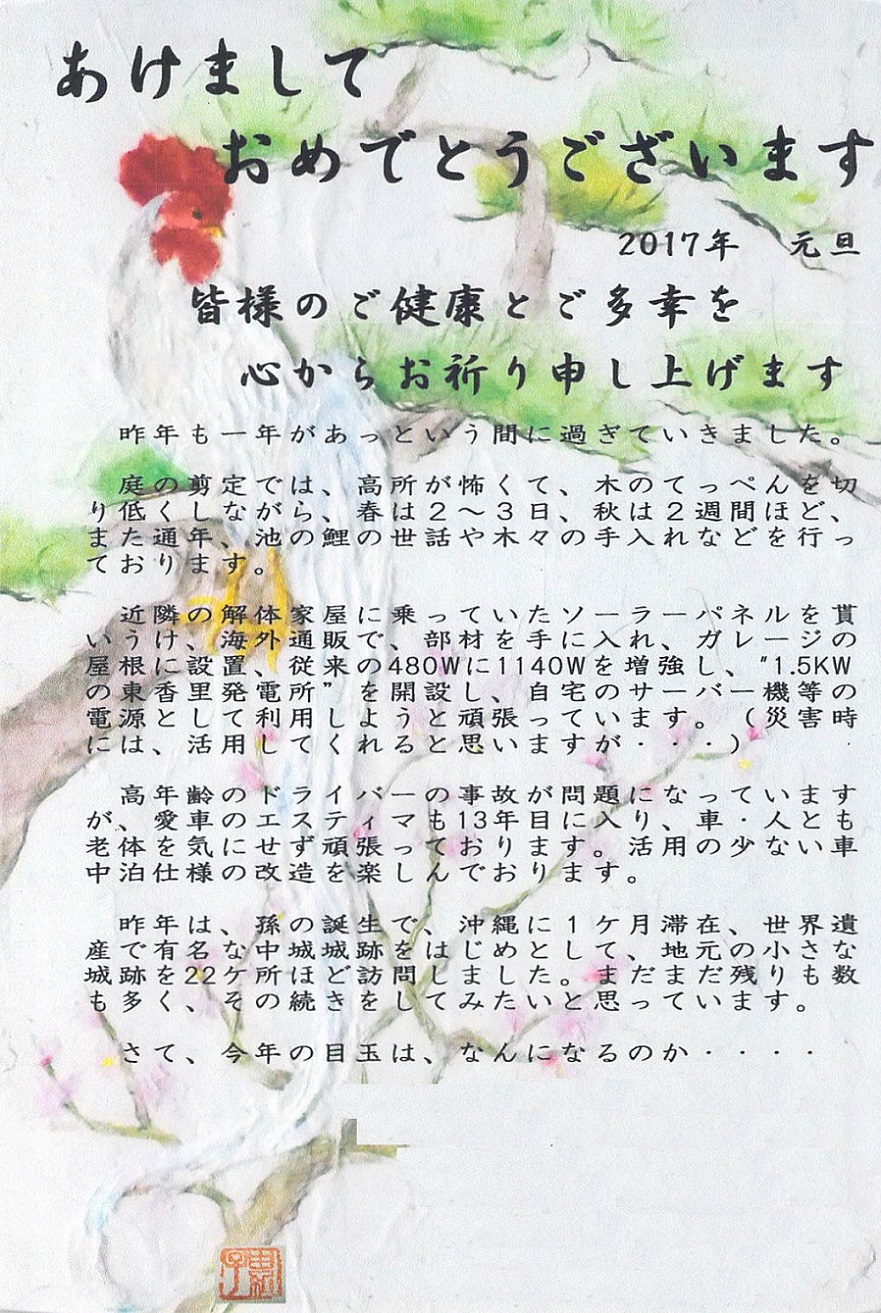 あけまして
おめでとうございます
2017年　元旦
皆様のご健康とご多幸を
心からお祈り申し上げます
昨年も一年があっという間に過ぎていきました。
庭の剪定では、高所が怖くて、木のてっぺんを切
り低くしながら、春は２～３日、秋は２週間ほど、
また通年、池の鯉の世話や木々の手入れなどを行っ
ております。
近隣の解体家屋に乗っていたソーラーパネルを貰
いうけ、海外通販で、部材を手に入れ、ガレージの
屋根に設置、従来の480Wに1140Wを増強し、"1.5KW
の東香里発電所”を開設し、自宅のサーバー機等の
電源として利用しようと頑張っています。（災害時
には、活用してくれると思いますが・・・）
高年齢のドライバーの事故が問題になっています
が、愛車のエスティマも13年目に入り、車・人とも
老体を気にせず頑張っております。活用の少ない車
中泊仕様の改造を楽しんでおります。
昨年は、孫の誕生で、沖縄に１ケ月滞在、世界遺
産で有名な中城城跡をはじめとして、地元の小さな
城跡を22ケ所ほど訪問しました。まだまだ残りも数
も多く、その続きをしてみたいと思っています。
さて、今年の目玉は、なんになるのか・・・・